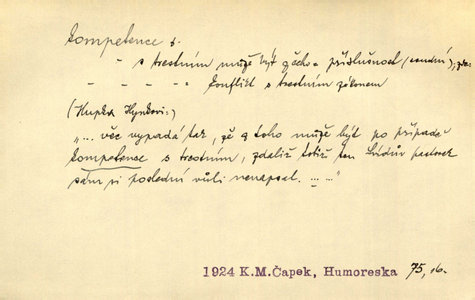 kompetence s.
" s trestním může být něčho příslušnost (soudní), zde
" - - - " konflikt s trestním zákonem
(Hupka Hynkovi:)
"... věc vypadá tak, že z toho může být po případě
kompetence s trestním, zdaliž totiž ten Lidův pastorek
sám si poslední vůli nenapsal. ... ..."
1924 K.M.Čapek, Humoreska 75, n.